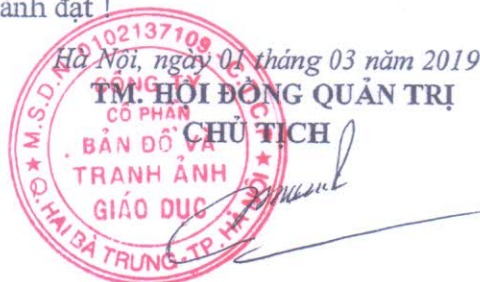 anh đạt !
Hà Nội, ngày 01 tháng 03 năm 2019
TM. HỘI ĐỒNG QUẢN TRỊ
CHỦ TỊCH
M.S.D.N: 0102137109 - C.T.C.P
CÔNG TY
CỔ PHẦN
BẢN ĐỒ VÀ
TRANH ẢNH
GIÁO DỤC
Q. HAI BÀ TRƯNG - TP. HÀ NỘI